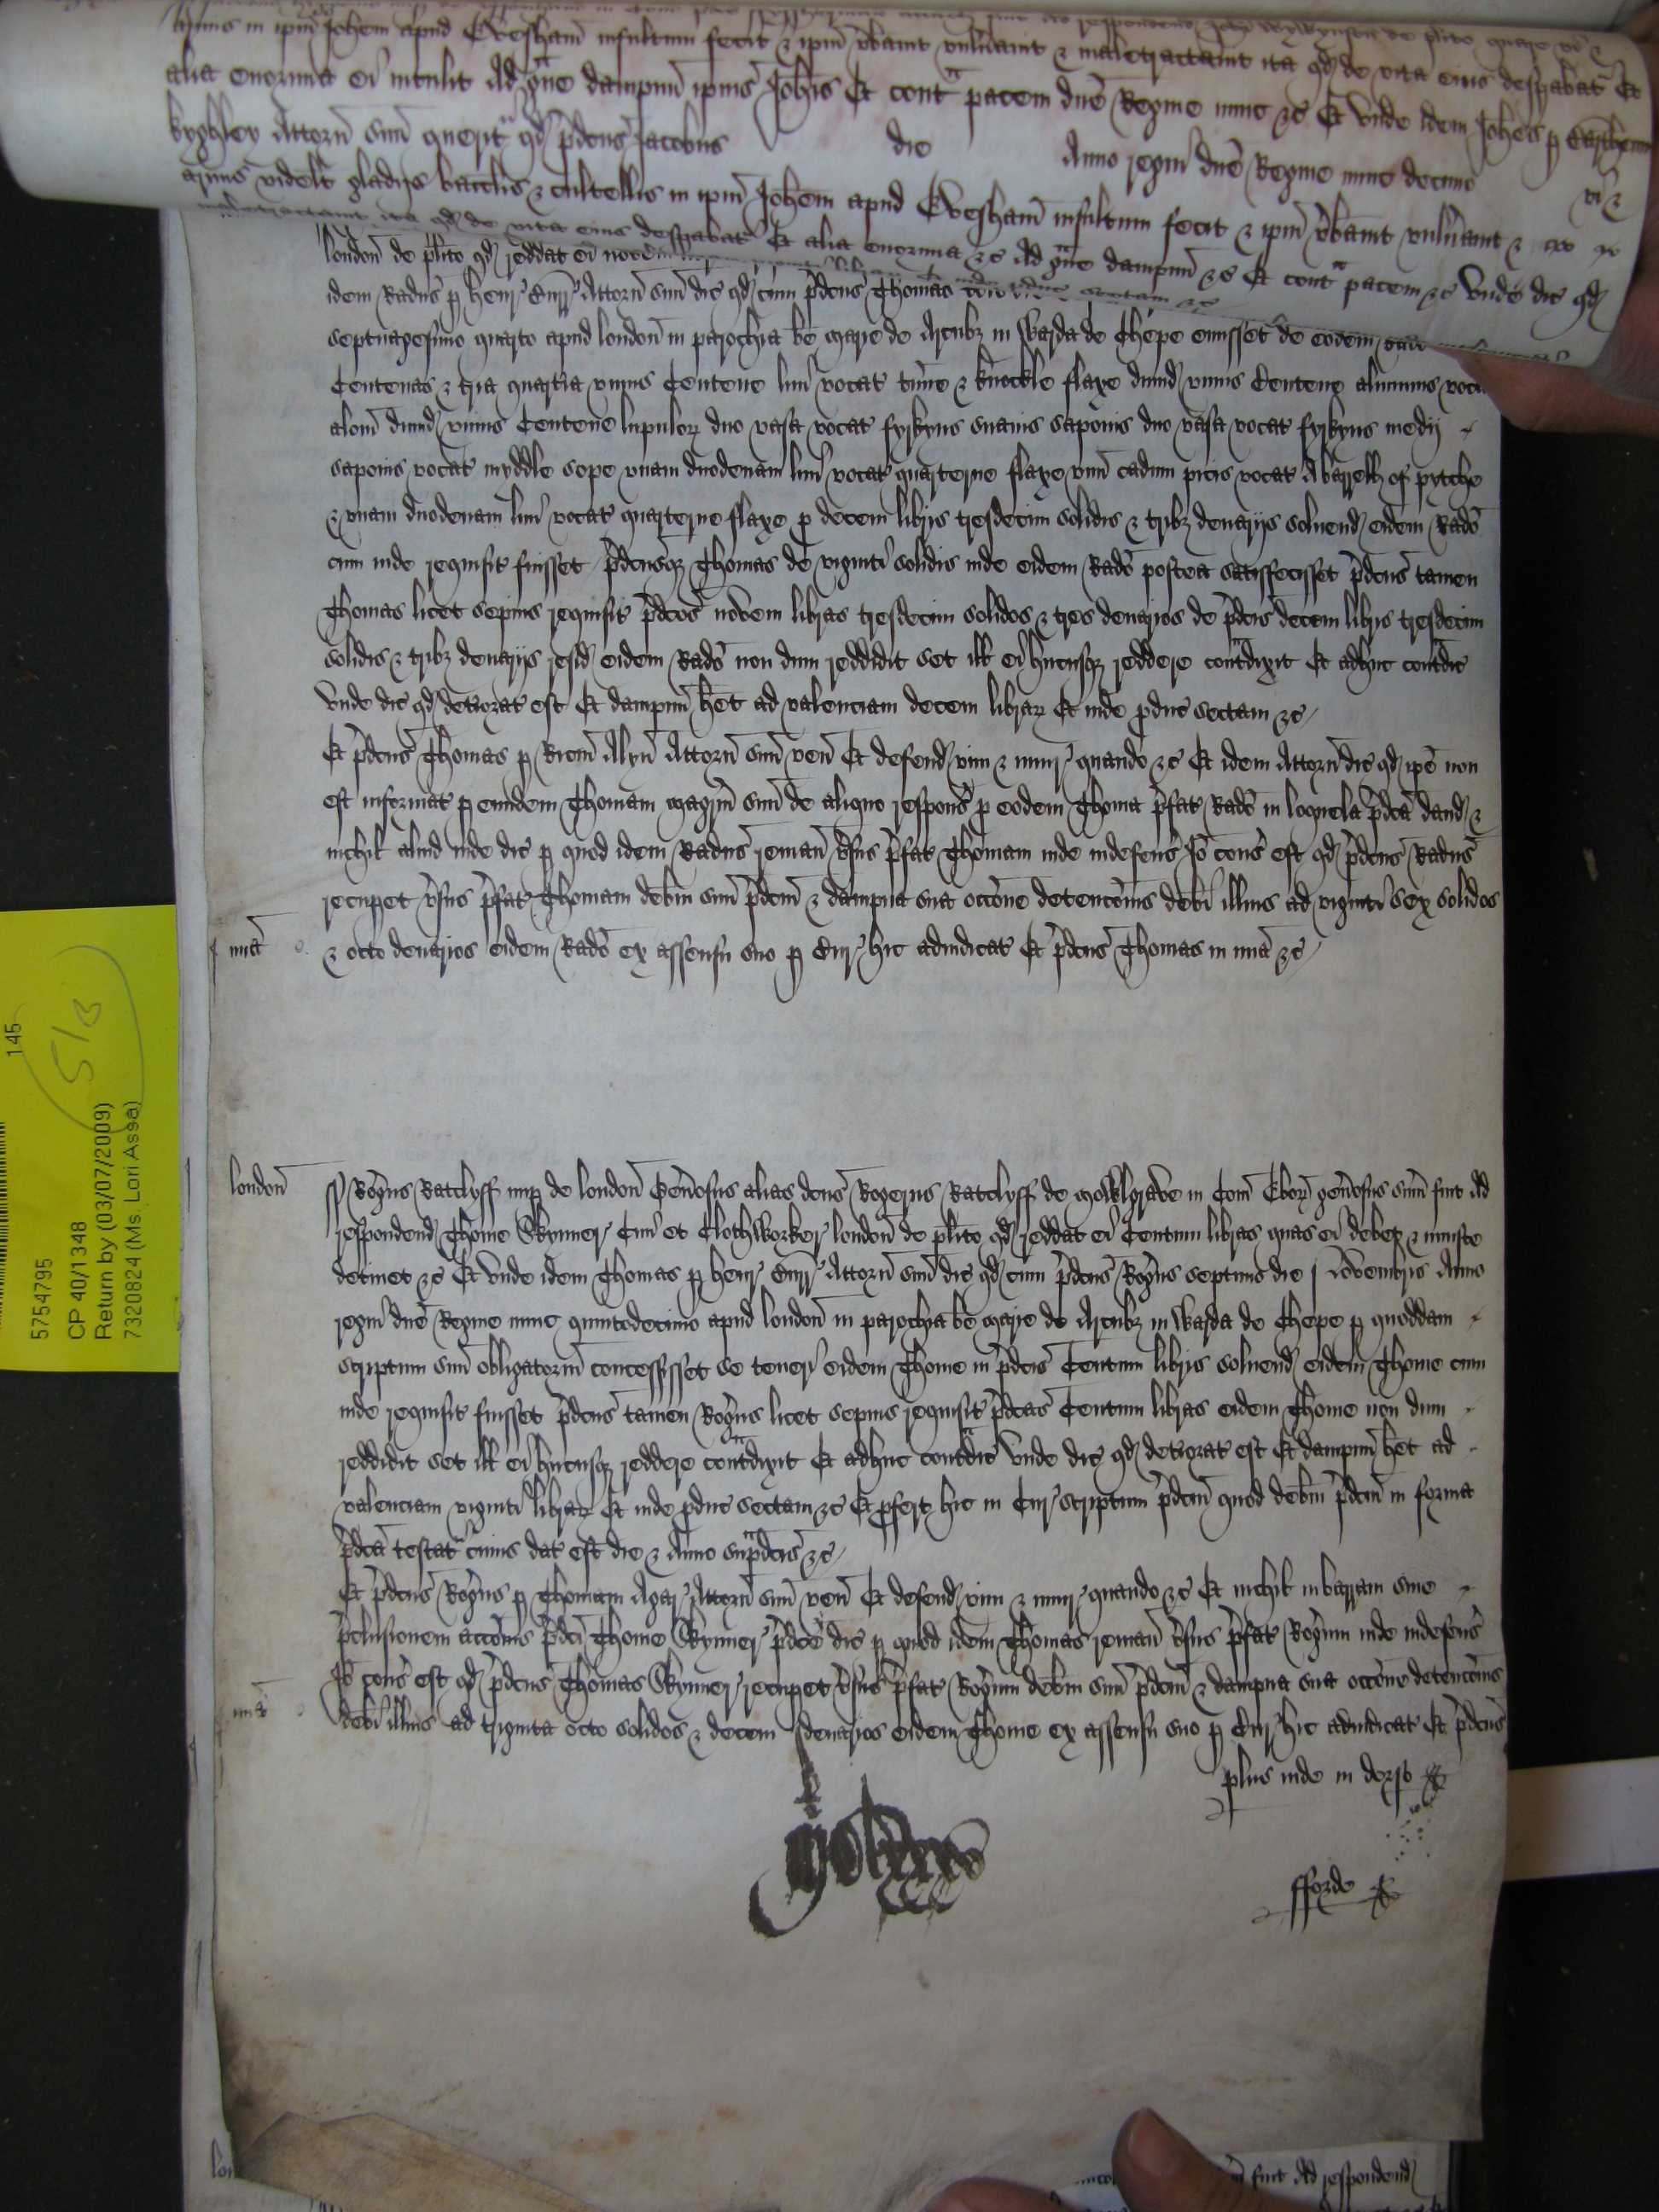 Armis in ip̄m Joh̄em apud Evesham̄ insultum fecit & ip̄m v̄bavit vuln̄avit & maletractavit ita qd̛ de vita eius despabat̛ Et
alia enormia ei intulit Ad g̃ve dampnū ip̄ius Joh̄is Et cont̃ pacem dn̄e Regine nunc &c Et unde idem Joh̄es p
kyghley Attorn̄ suū querit̛ qd̛ p̄dcūs Jacobus die Anno regni dn̄e Regine nunc decimo vi &
armis videlt̛ gladijs bac̄lis & cultellis in ip̄m Joh̄em apud Evesham̄ insultum fecit & ip̄m v̄bavit vuln̄avit &
maletractavit ita qd̛ de vita eius despabat̛ Et alia enormia &c Ad g̃ve dampnū &c Et cont̃ pacem &c Unde dic̄ qd̛
london̄ de plīto qd̛ reddat ei novem
idem Radūs p Henr̛ Attorn̄ suū dic̄ qd̛ cum p̄dcūs Thomas
septuagesimo quarto apud london̄ in parochia bē Marie de Arcubȝ in Warda de Chepe emisset de eodem
Centenas & tria quartia unius Centene lini vocat̛ & knockle flaxe dimid̛ unius Centene aluminis
alom̄ dimid̛ unius Centene lupuloȝ duo vasa vocat̛ fyrkyns suavis saponis duo vasa vocat̛ fyrkyns medij
saponis vocat̛ myddle sope unam duodenam lini vocat̛ quarterne flaxe unū cadum picis vocat̛ A barrell of pytche
& unam duodenam lini vocat̛ quarterne flaxe p decem libris tresdecim solidis & tribȝ denarijs solvend̛ eidem Rad̄o
cum inde requisit̛ fuisset p̄dcūsqȝ Thomas de viginti solidis inde eidem Rad̄o postea satisfecisset p̄dcūs tamen
Thomas licet sepius requisit̛ p̄dcās novem libras tresdecim solidos & tres denarios de p̄dcīs decem libris tresdecim
solidis & tribȝ denarijs resid̛ eidem Rad̄o non dum reddidit set ill̄ ei hucusqȝ reddere cont̃dixit Et adhuc cont̃dic̄
Unde dic̄ qd̛ det̄iorat̛ est Et dampnū h̄et ad valenciam decem libraȝ Et inde pduc̄ sectam &c
Et p̄dcūs Thomas p Ric̄m Alyn̄ Attorn̄ suū ven̄ Et defend̛ vim & iniur̛ quando &c Et idem Attorn̄ dic̄ qd̛ ip̄e non
est informat̛ p eundem Thomam mag̃rm suū de aliquo respons̄ p eodem Thoma p̄fat̛ Rad̄o in loquela p̄dcā dand̛ &
nichil aliud inde dic̄ p quod idem Radūs reman̄ v̄sus p̄fat̛ Thomam inde indefens̄ Jō cons̄ est qd̛ p̄dcūs Radūs
recupet v̄sus p̄fat̛ Thomam deb̄m suū p̄dcm̄ & dampna sua occōne detencōnis deb̄i illius ad viginti sex solidos
mīa
& octo denarios eidem Rad̄o ex assensu suo p Cur̛ hic adiudicat̛ Et p̄dcūs Thomas in mīa &c
london̄
Rog̃us Ratclyff nup de london̄ Gen̄osus alias dcūs Rogerus Ratclyff de Mowlgrave in Com̄ Ebor̄ gen̄osus sum̄ fuit Ad
respondend̛ Thome Skynner̛ Civi et Clothworker̛ london̄ de plīto qd̛ reddat ei Centum libras quas ei debet & iniuste
detinet &c Et Unde idem Thomas p Henr̛ Attorn̄ suū dic̄ qd̛ cum p̄dcūs Rog̃us septimo die Novembris Anno
regni dn̄e Regine nunc quintodecimo apud london̄ in parochia bē Marie de Arcubȝ in Warda de Chepe p quoddam
scriptum suū obligatoriū concessisset se teneri eidem Thome in p̄dcīs Centum libris solvend̛ eidem Thome cum
inde requisit̛ fuisset p̄dcūs tamen Rog̃us licet sepius requisit̛ p̄dcās Centum libras eidem Thome non dum
reddidit set ill̄ ei hucusqȝ reddere cont̃dixit Et adhuc cont̃dic̄ Unde dic̄ qd̛ det̄iorat̛ est Et dampnū h̄et ad
valenciam viginti libraȝ Et inde pduc̄ sectam &c Et pfert hic in Cur̛ scriptum p̄dcm̄ quod deb̄m p̄dcm̄ in forma
p̄dcā testat̛ cuius dat̛ est die & Anno sup̃dcīs &c
Et p̄dcūs Rog̃us p Thomam Agar̛ Attorn̄ suū ven̄ Et defend̛ vim & iniur̛ quando &c Et nichil in barram sive
p̄clusionem accōnis p̄dcī Thome Skynner̛ p̄dcē dic̄ p quod idem Thomas reman̄ v̄sus p̄fat̛ Rog̃um inde indefens̄
Jō cons̄ est qd̛ p̄dcūs Thomas Skynner̛ recupet v̄sus p̄fat̛ Rog̃um deb̄m suū p̄dcm̄ & dampna sua occōne detencōnis
mīa
deb̄i illius ad triginta octo solidos & decem denarios eidem Thome ex assensu suo p Cur̛ hic adiudicat̛ Et p̄dcūs
plus inde in dorso
fforde
fuit Ad respondend̛
145
5/8
5754795
CP 40/1348
Return by (03/07/2009)
7320824 (Ms. Lori Assa)